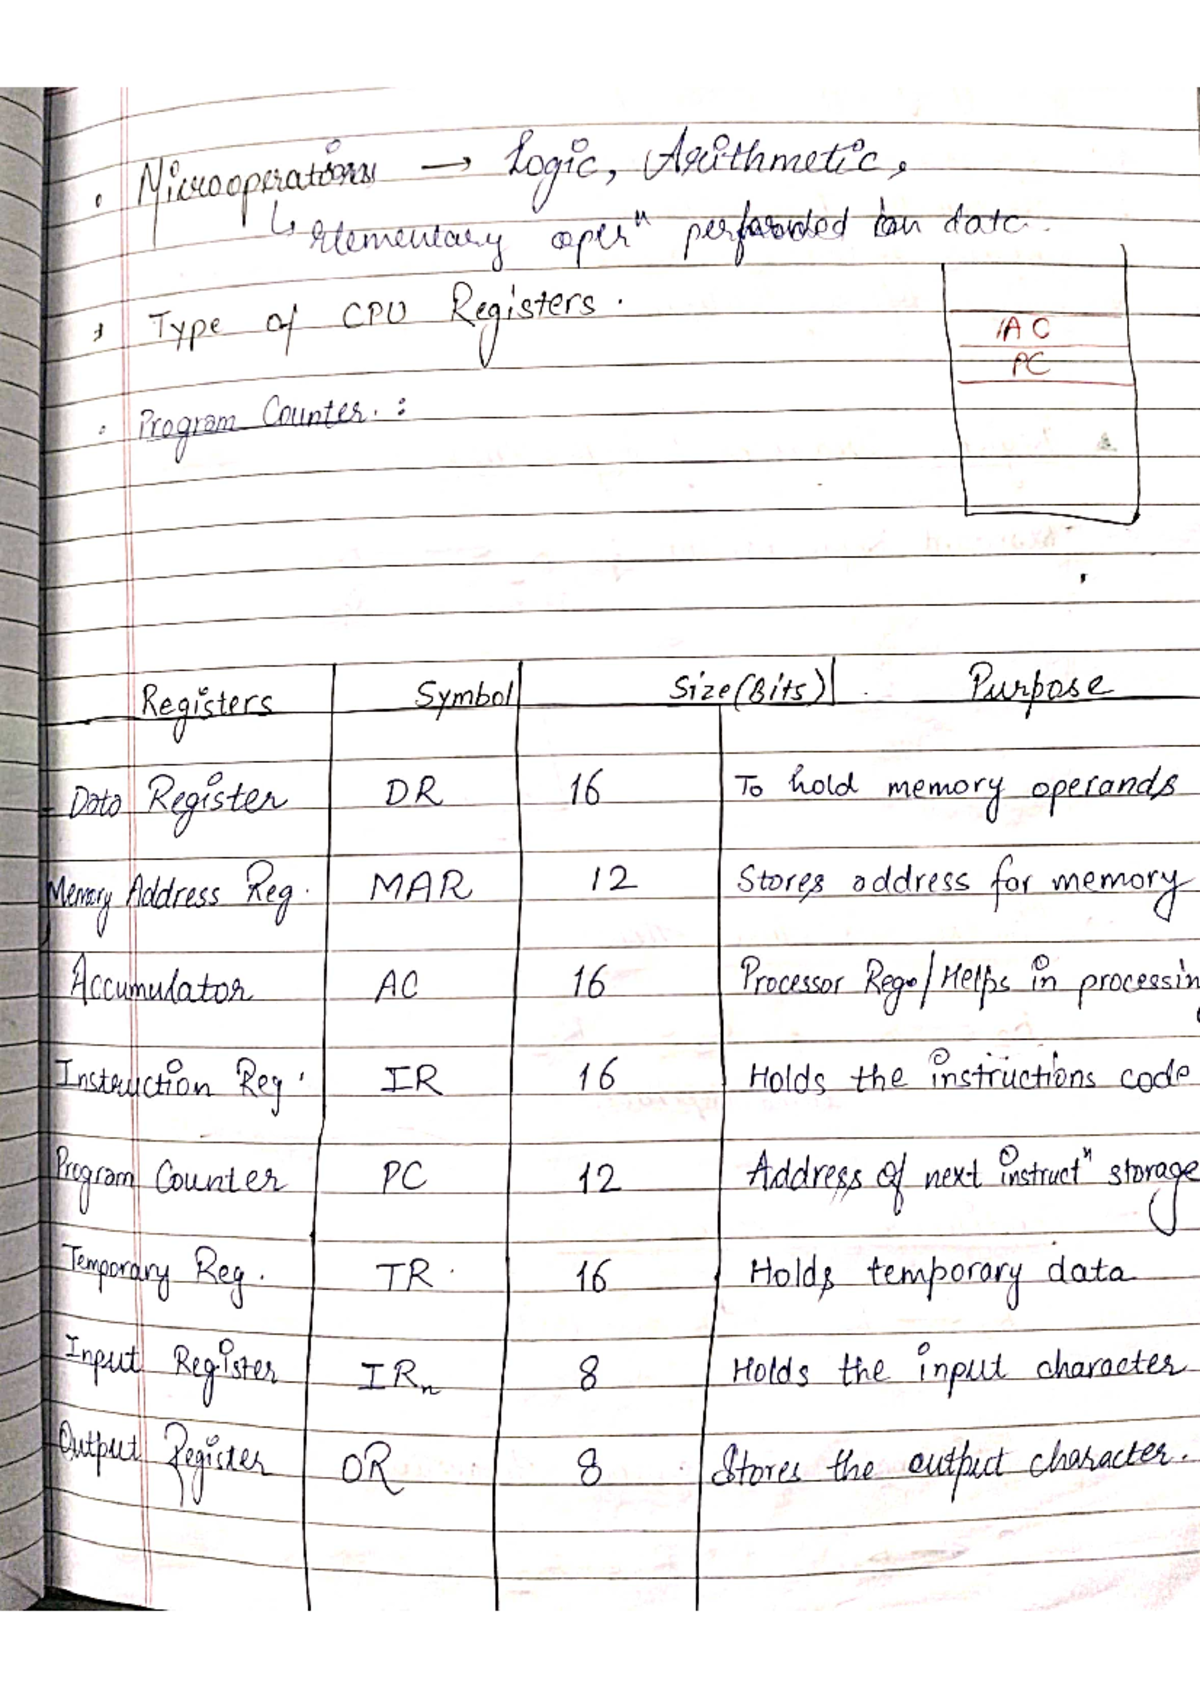 Microoperations → Logic, Arithmetic,
↳ elementary opern performed on data.
Type of CPU Registers.
AC
PC
Program Counter. :
Registers Symbol Size (Bits) Purpose
Data Register DR 16 To hold memory operands
Memory Address Reg. MAR 12 Stores address for memory
Accumulator AC 16 Processor Reg./Helps in processin
Instruction Reg. IR 16 Holds the instructions code
Program Counter PC 12 Address of next instructn storage
Temporary Reg. TR. 16 Holds temporary data
Input Register IRn 8 Holds the input character
Output Register OR 8 Stores the output character.